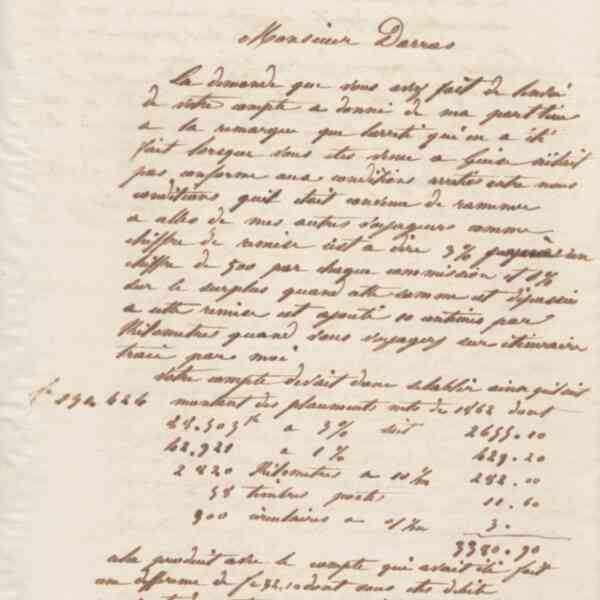 Monsieur Darras
La demande que vous avez fait de
de votre compte a donné de ma part lieu
a la remarque que l'arrêté qu'on a été
fait lorsque vous etes venue a Guise n'était
pas conforme aux conditions arretés entre nous
conditions qu'il etait convenu de ramener
a celles de mes autres voyageurs comme
chiffre de remise c'est a dire 3% jusqu'à un
chiffre de 500 par chaque commission et 1%
sur le surplus quand cette somme est dépassée
a cette remise est ajouté 10 centimes par
Kilometres quand vous voyagez sur itinéraire
tracé par moi
Votre compte devait donc s'etablir ainsi qu'il suit
fr 131.424 montant des placements nets de 1862 dont
88.503 fr a 3% soit 2655.10
42.921 a 1% 429.20
2820 Kilometres a 10/m 282.00
58 timbres postes 11.60
300 circulaires a 3.
3380.90
cela produit avec le compte qui avait été fait
une différence de f 32.10 dont vous etes débité